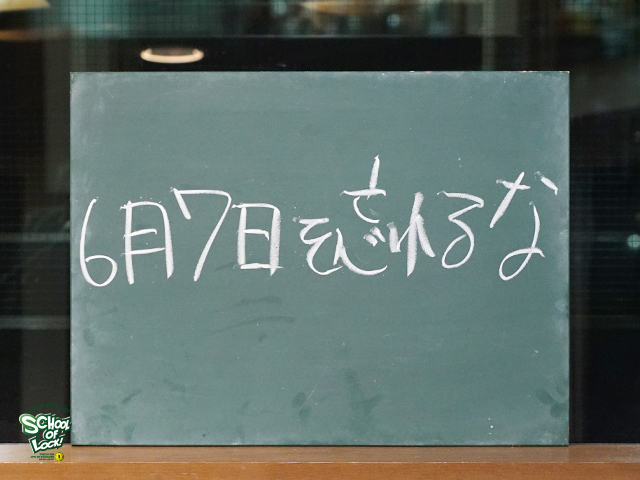 6月7日を忘れるな
SCHOOL
OF
LOCK!